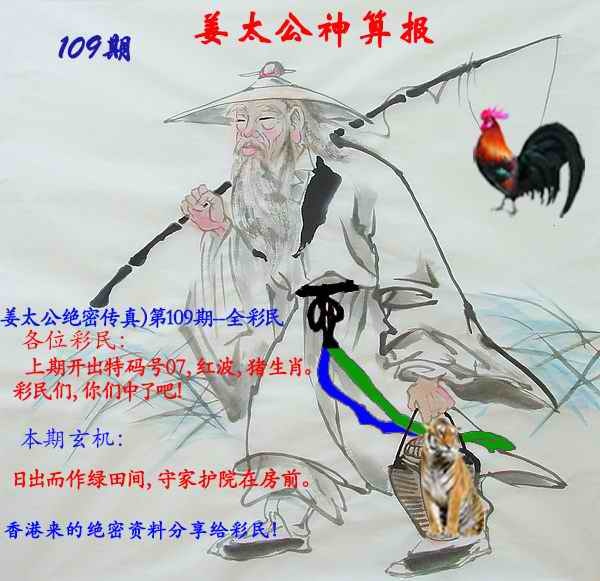 109期
姜太公神算报
姜太公绝密传真)第109期--全彩民
各位彩民:
上期开出特码号07,红波,猪生肖。
彩民们,你们中了吧!
本期玄机:
日出而作绿田间,守家护院在房前。
香港来的绝密资料分享给彩民!